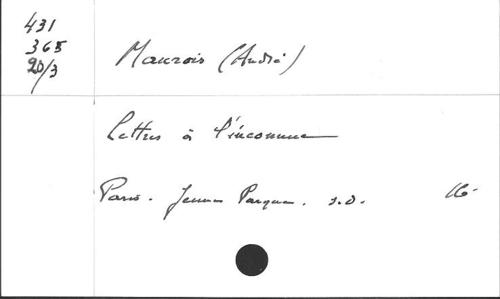 431
365
20/3
Maurois (André)
Lettres à l'inconnue
Paris. Jeune Parque. s.d.
16-